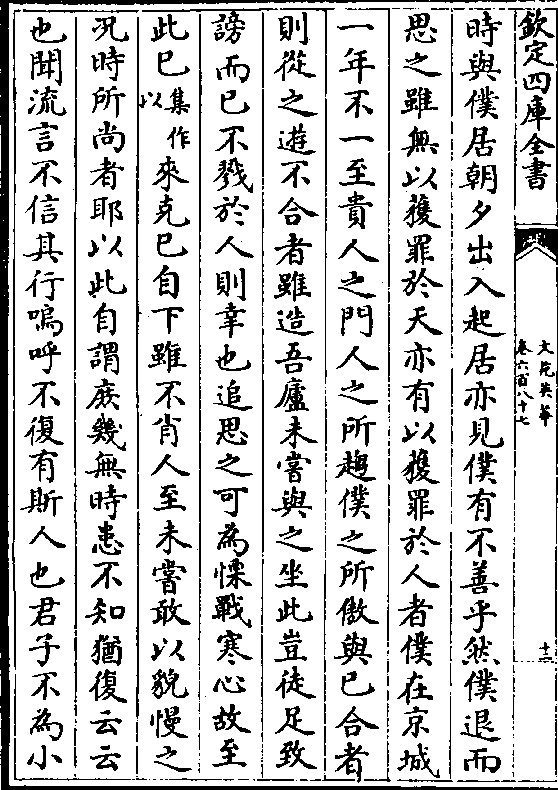 欽定四庫全書
文苑英華
卷六百八十七
十二
時與僕居朝夕出入起居亦見僕有不善乎然僕退而
思之雖無以獲罪於天亦有以獲罪於人者僕在京城
一年不一至貴人之門人之所趨僕之所傲與已合者
則從之遊不合者雖造吾廬未嘗與之坐此豈徒足致
謗而已不戮於人則幸也追思之可為慄戰寒心故至
此已集作以來克已自下雖不肖人至未嘗敢以貌慢之
况時所尚者耶以此自謂庶幾無時患不知猶復云云
也聞流言不信其行嗚呼不復有斯人也君子不為小